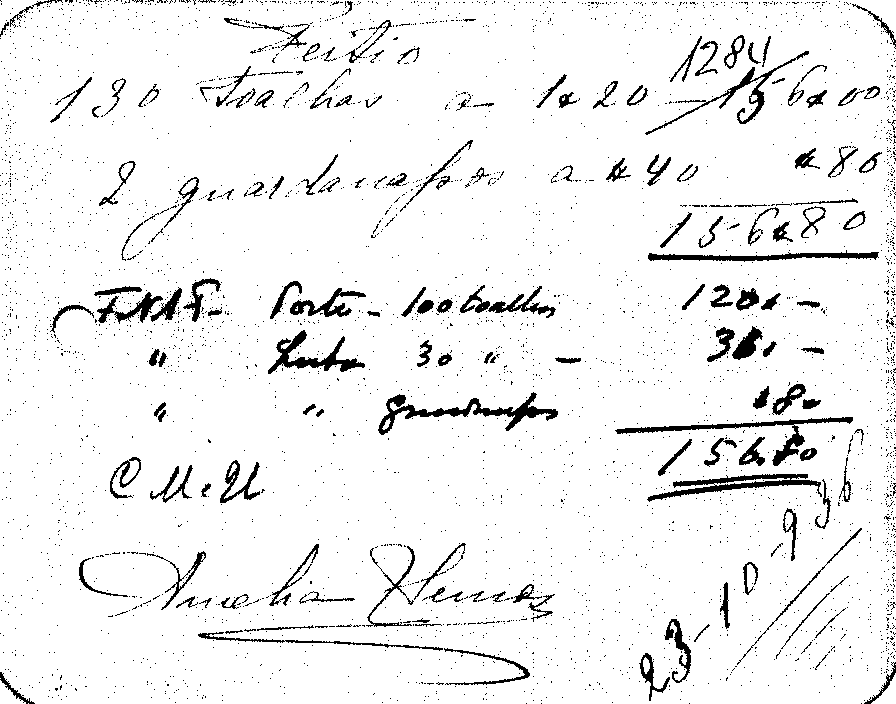 Feitio
1284
130 Toalhas a 1$20 156$00
2 guardanapos a $40 $80
156$80
F.N.A.T. - Porto - 100 toalhas 120$ -
" 30 " - 36$ -
" " guardanapos $80
156$80
C M e U
Amelia
23-10-936